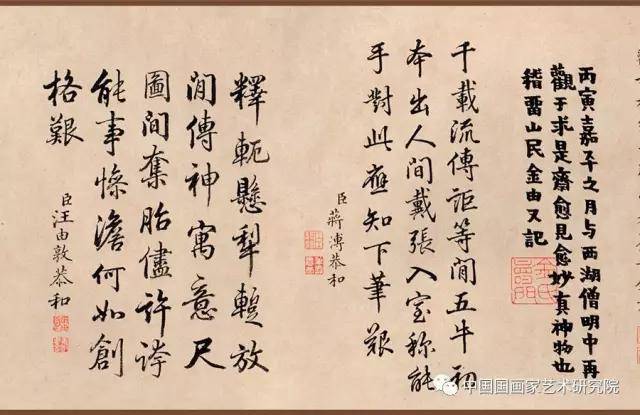 丙寅嘉平之月与西湖僧明中再
觀于求是齋愈見愈妙真神物也
稽畱山民金由又記
千載流傳詎等閒五牛初
本出人間戴張入室称能
手對此應知下筆艱
臣蔣溥恭和
釋軛懸犁暫放
閒傳神寓意尺
圖間奪胎儘許誇
能事慘澹何如創
格艱
臣汪由敦恭和
中国国画家艺术研究院